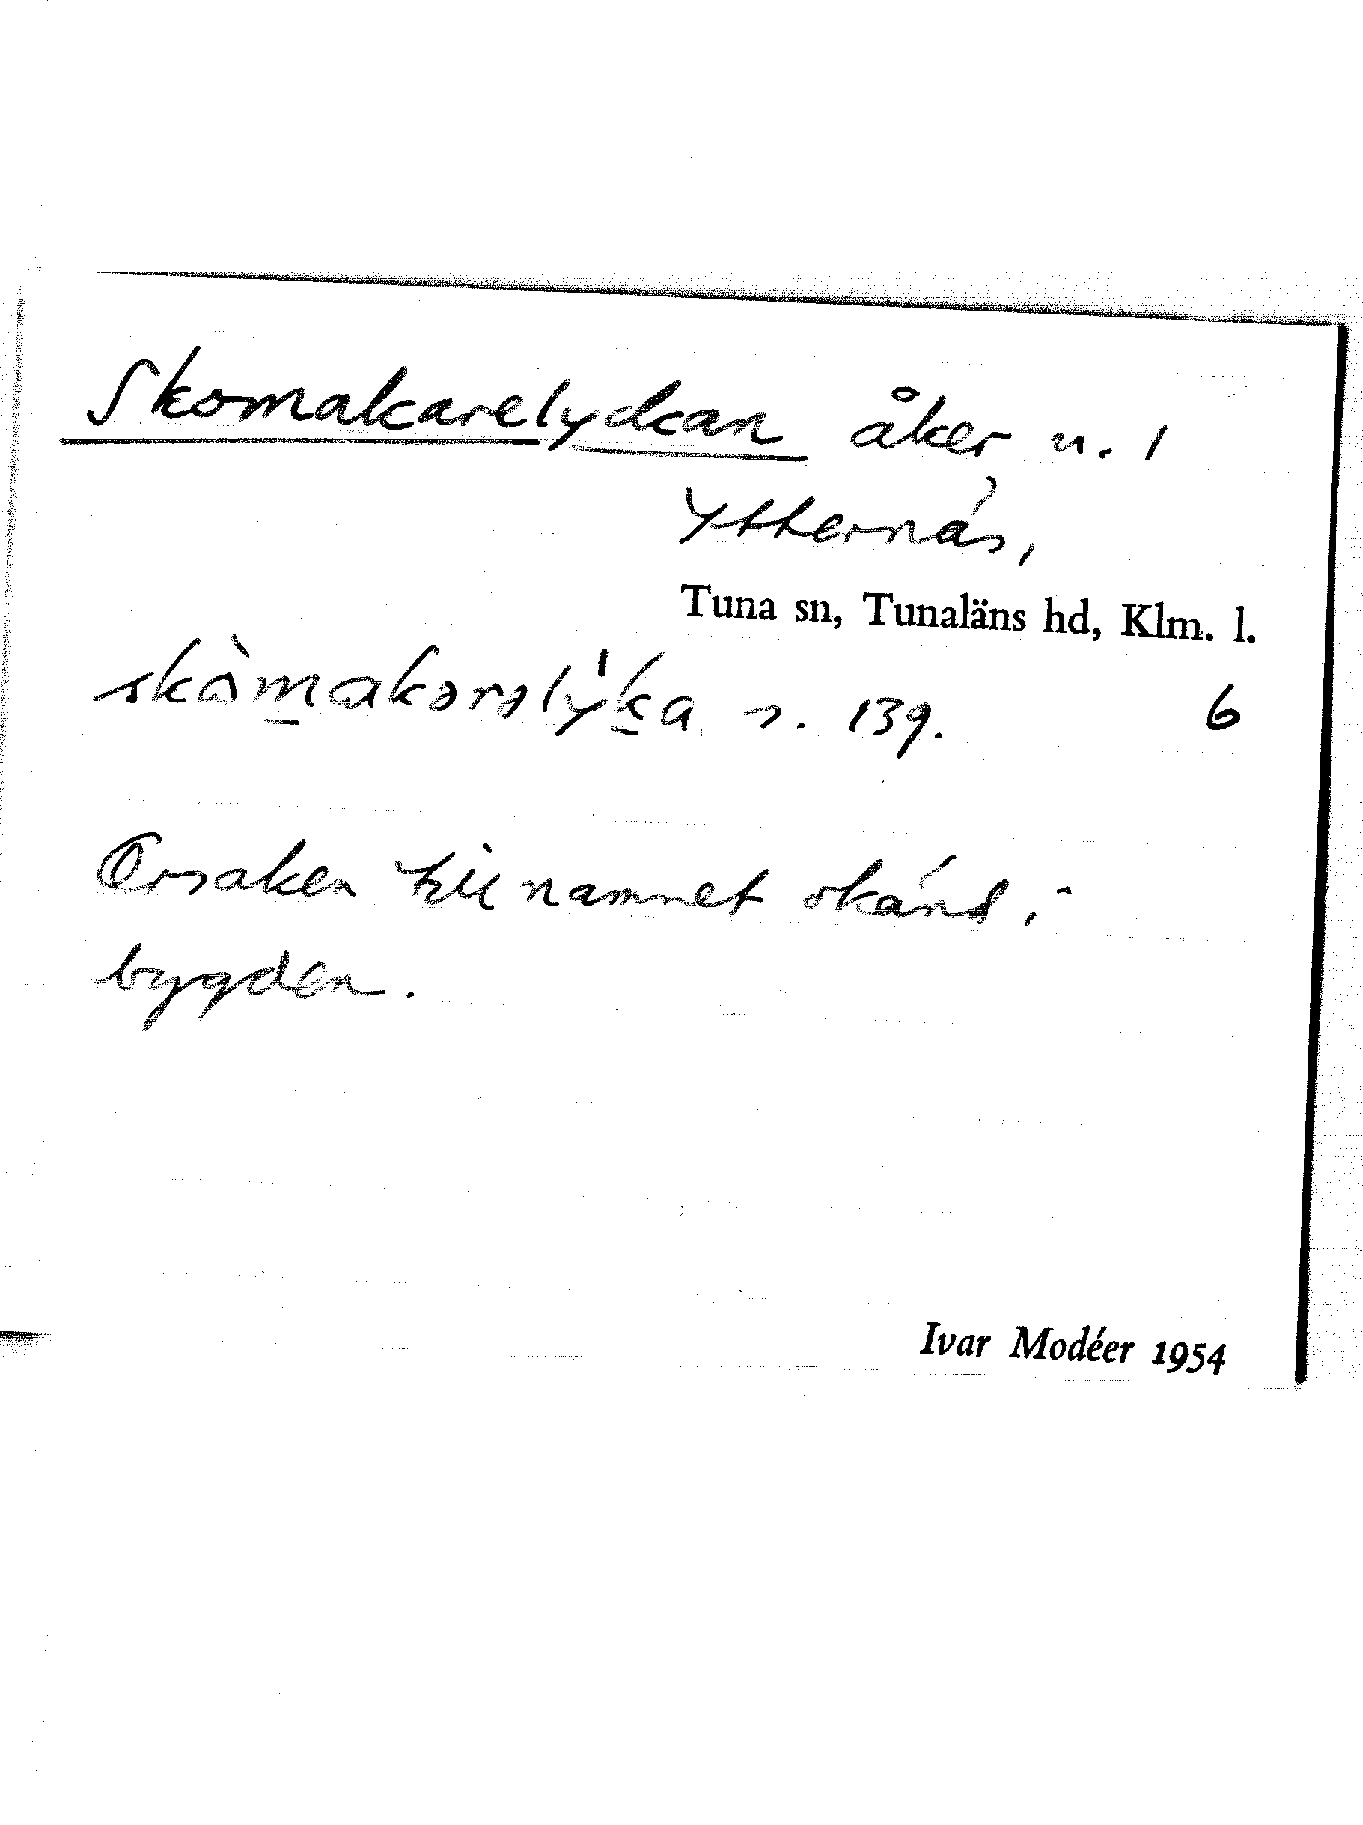 Skomakarelyckan åker n. 1
Ytternäs,
Tuna sn, Tunaläns hd, Klm. l.
skòmakərəlỳka s. 139. 6
Orsaken till namnet okänd i
bygden.
Ivar Modéer 1954